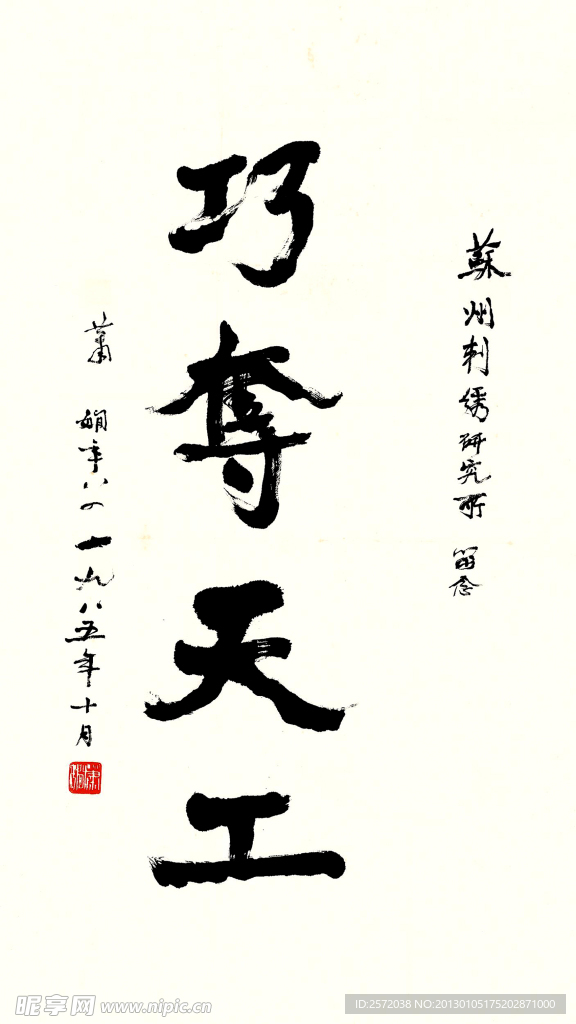 蘇州刺绣研究所 留念
巧奪天工
蕭娴年八四 一九八五年十月
蕭娴
昵享网 www.nipic.cn
ID:2572038 NO:20130105175202871000